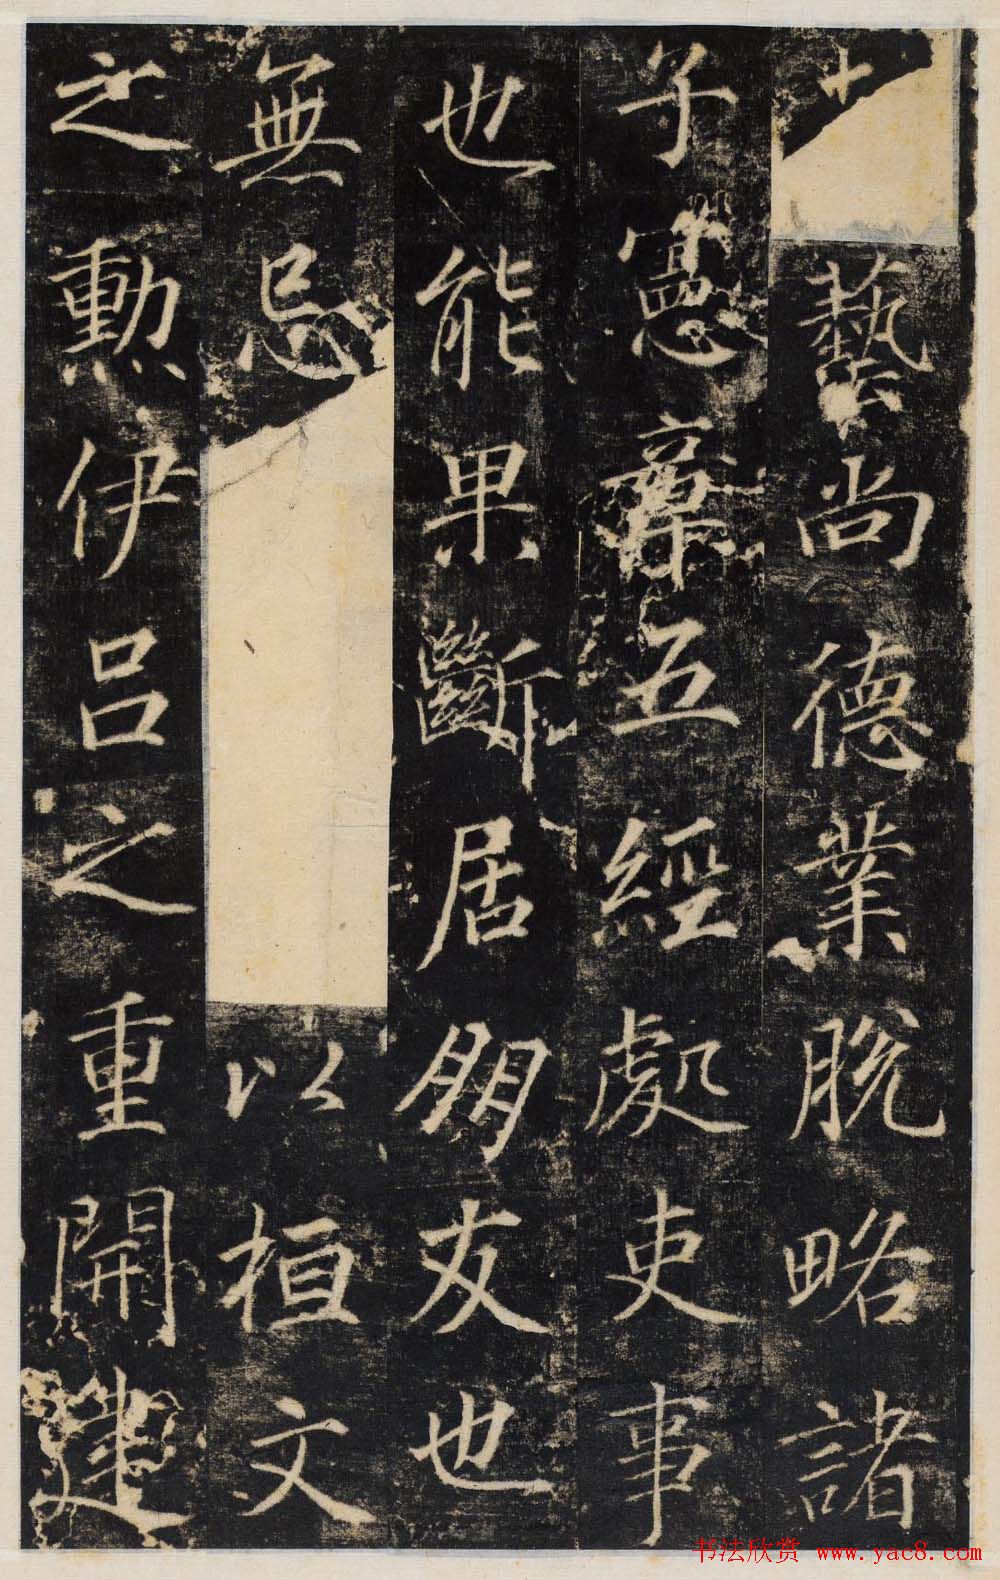 藝尚德業脫略諸
子憲章五經處吏事
也能果斷居朋友也
無忌以桓文
之勳伊呂之重開建
书法欣赏 www.yac8.com